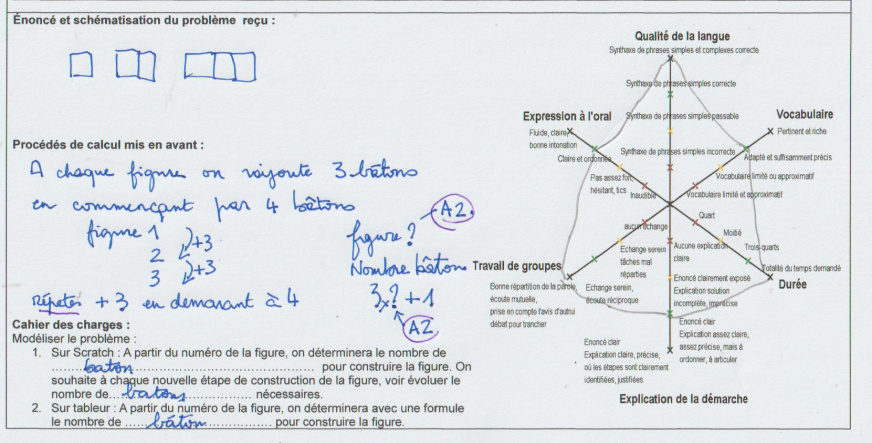 Énoncé et schématisation du problème reçu :
Procédés de calcul mis en avant :
A chaque figure on rajoute 3 bâtons
en commençant par 4 bâtons
figure 1
2
3
+3
+3
figure ?
A2
Nombre bâtons
3x? + 1
A2
Répéter +3 en démarant à 4
Cahier des charges :
Modéliser le problème :
1. Sur Scratch : A partir du numéro de la figure, on déterminera le nombre de
bâton pour construire la figure. On
souhaite à chaque nouvelle étape de construction de la figure, voir évoluer le
nombre de batons nécessaires.
2. Sur tableur : A partir du numéro de la figure, on déterminera avec une formule
le nombre de bâton pour construire la figure.
Qualité de la langue
Synthaxe de phrases simples et complexes correcte
Synthaxe de phrases simples correcte
Synthaxe de phrases simples passable
Synthaxe de phrases simples incorrecte
Expression à l'oral
Fluide, claire
bonne intonation
Claire et ordonnée
Pas assez fort,
hésitant, tics
Inaudible
Vocabulaire
Pertinent et riche
Adapté et suffisamment précis
Vocabulaire limité ou approximatif
Vocabulaire limité et approximatif
Quart
Moitié
Trois quarts
Totalité du temps demandé
Durée
aucun échange
Echange serein
tâches mal
réparties
Echange serein,
écoute réciproque
Travail de groupes
Bonne répartition de la parole,
écoute mutuelle,
prise en compte l'avis d'autrui
débat pour trancher
Aucune explication
claire
Enoncé clairement exposé
Explication solution
incomplète, imprécise
Enoncé clair
Explication assez claire,
assez précise, mais à
ordonner, à articuler
Enoncé clair
Explication claire, précise,
où les étapes sont clairement
identifiées, justifiées
Explication de la démarche